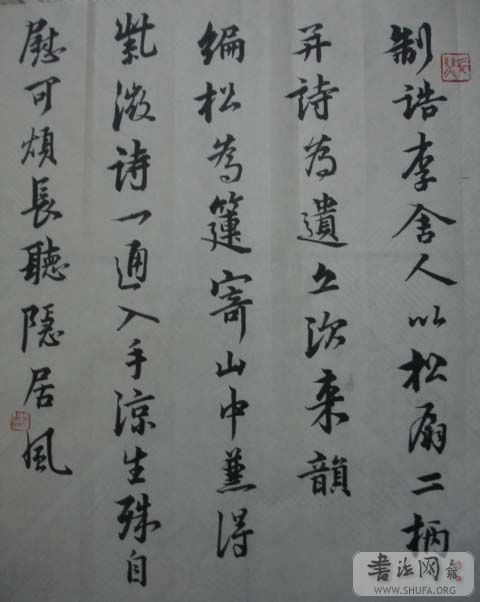 制誥李舍人以松扇二柄
并詩為遺亦次來韻
編松為箑寄山中兼得
紫微詩一通入手涼生殊自
慰可煩長聽隱居風
書法网
WWW.SHUFA.ORG